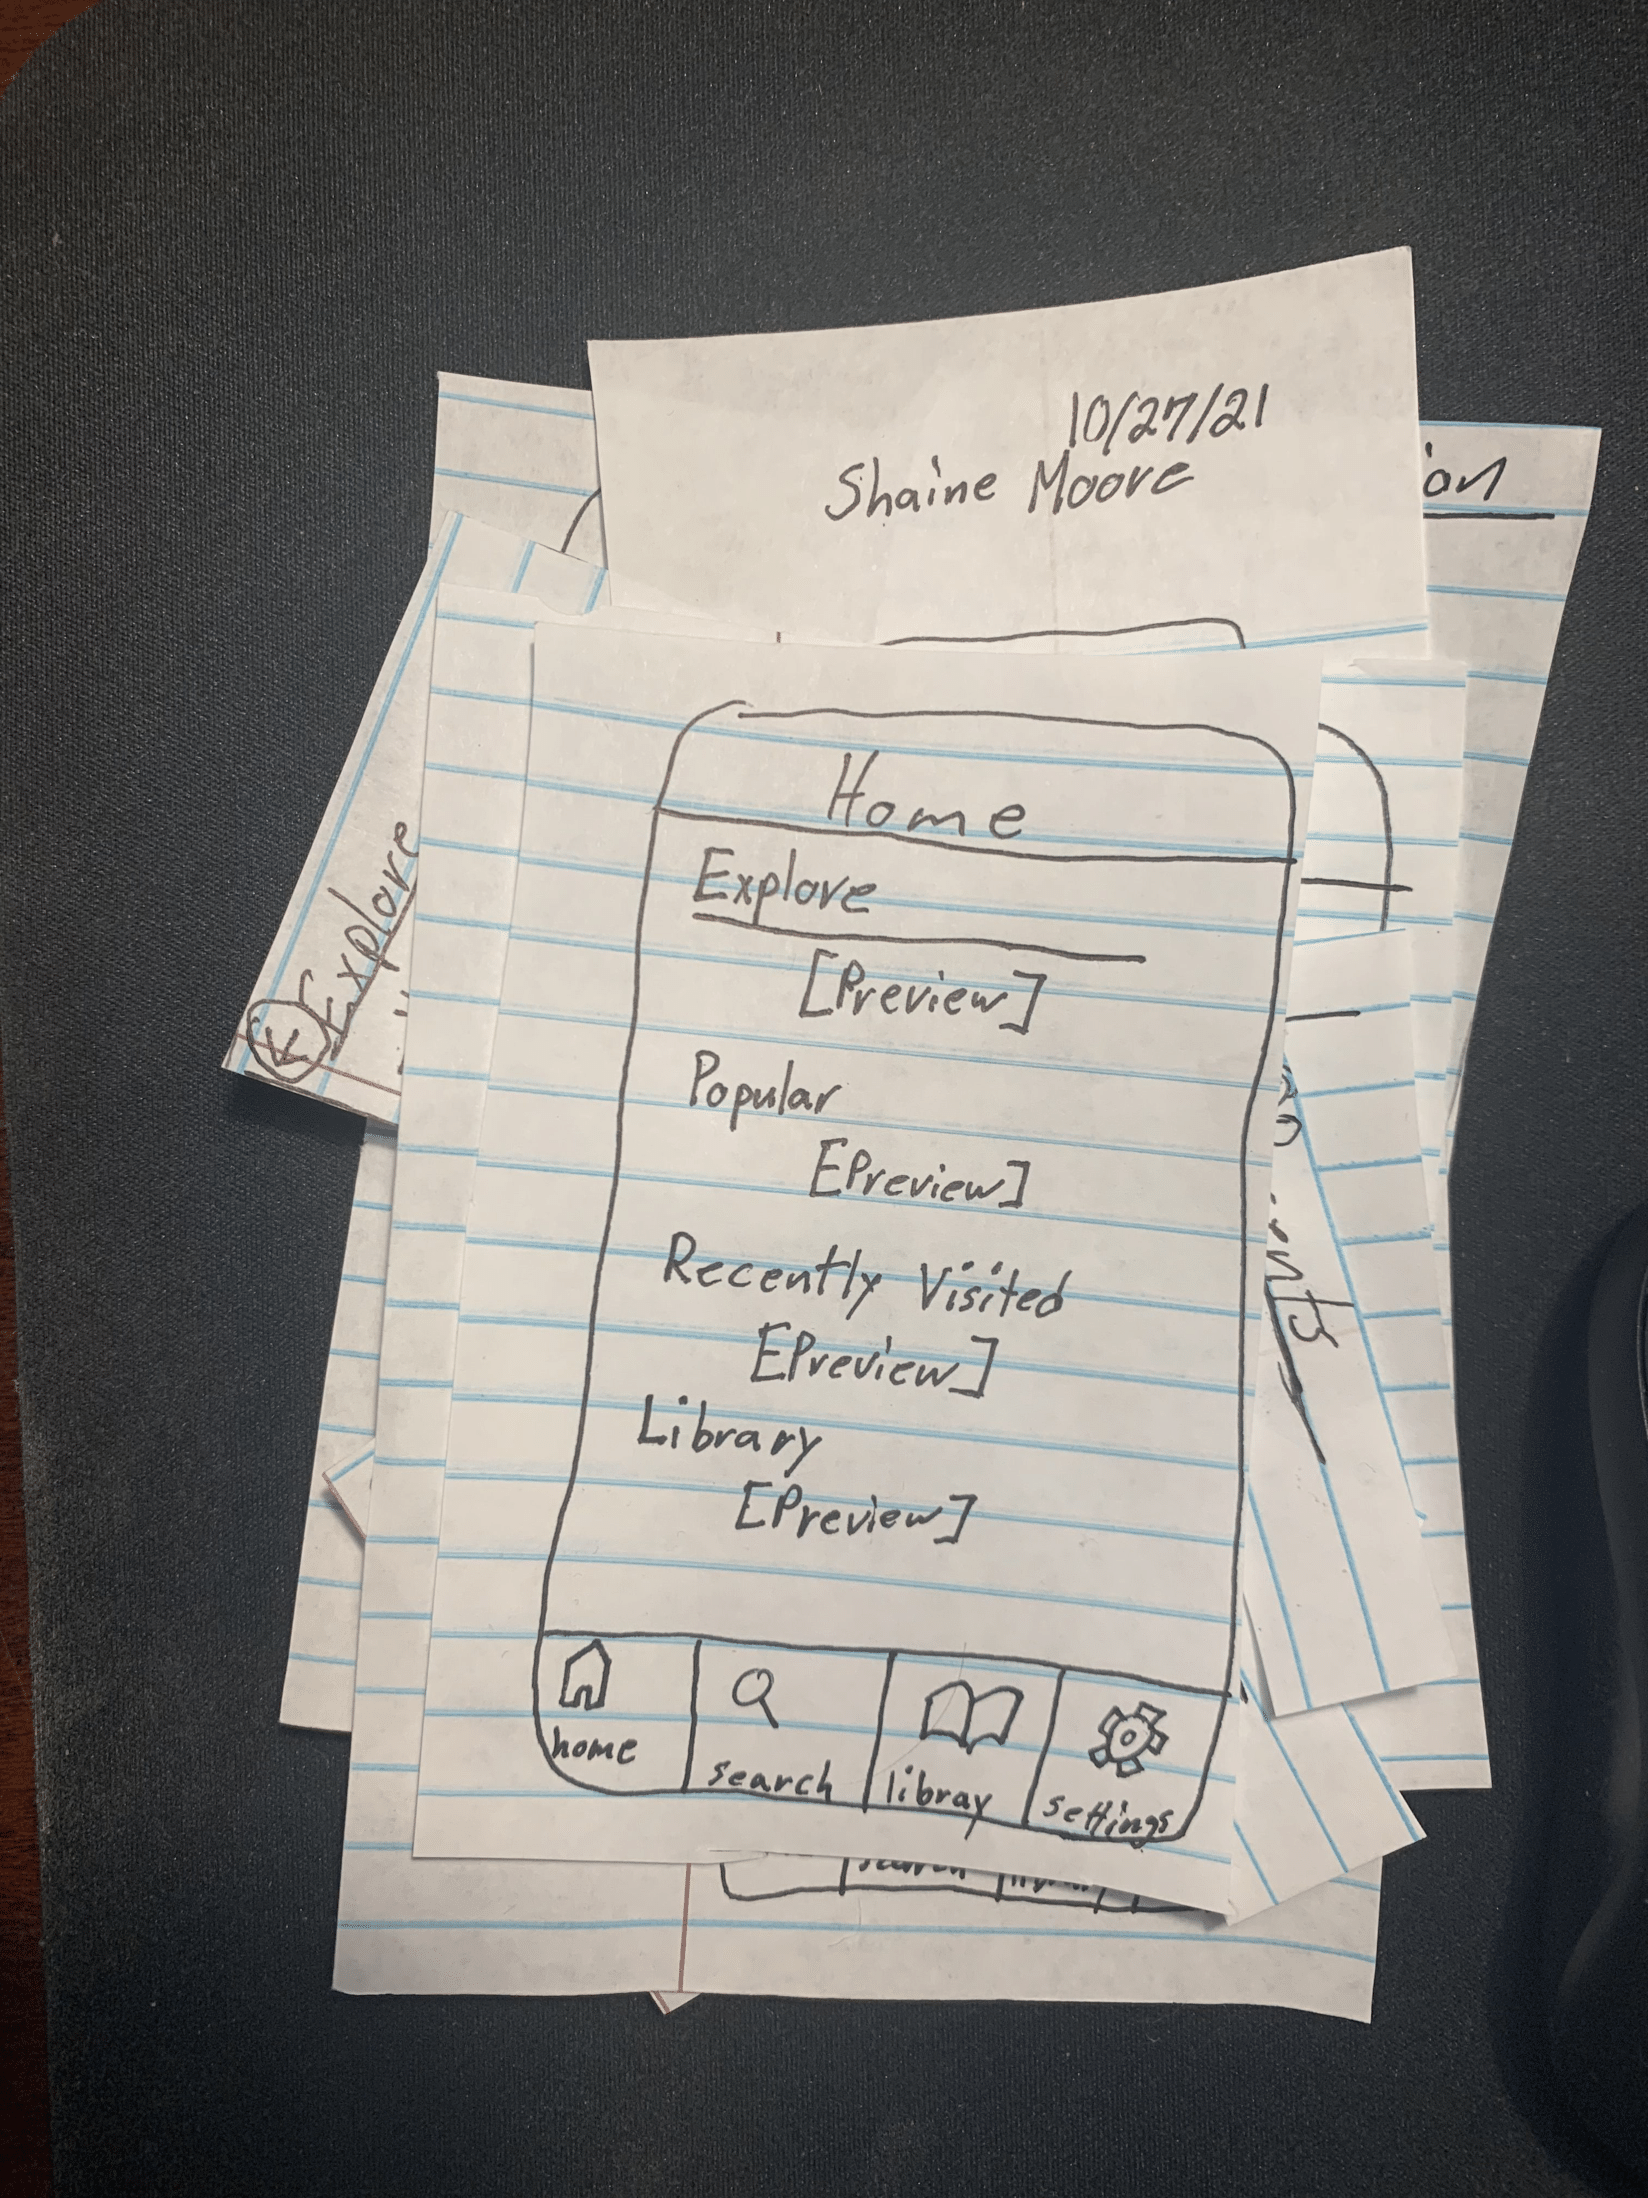 10/27/21
Shaine Moore
ion
Explore
Home
Explore
[Preview]
Popular
[Preview]
Recently Visited
[Preview]
Library
[Preview]
home
search
libray
settings
search